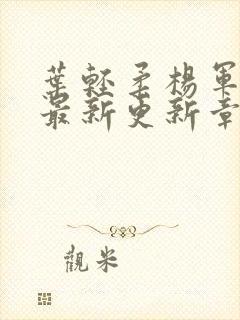 葉輕柔楊軍
最新更新章
觀米